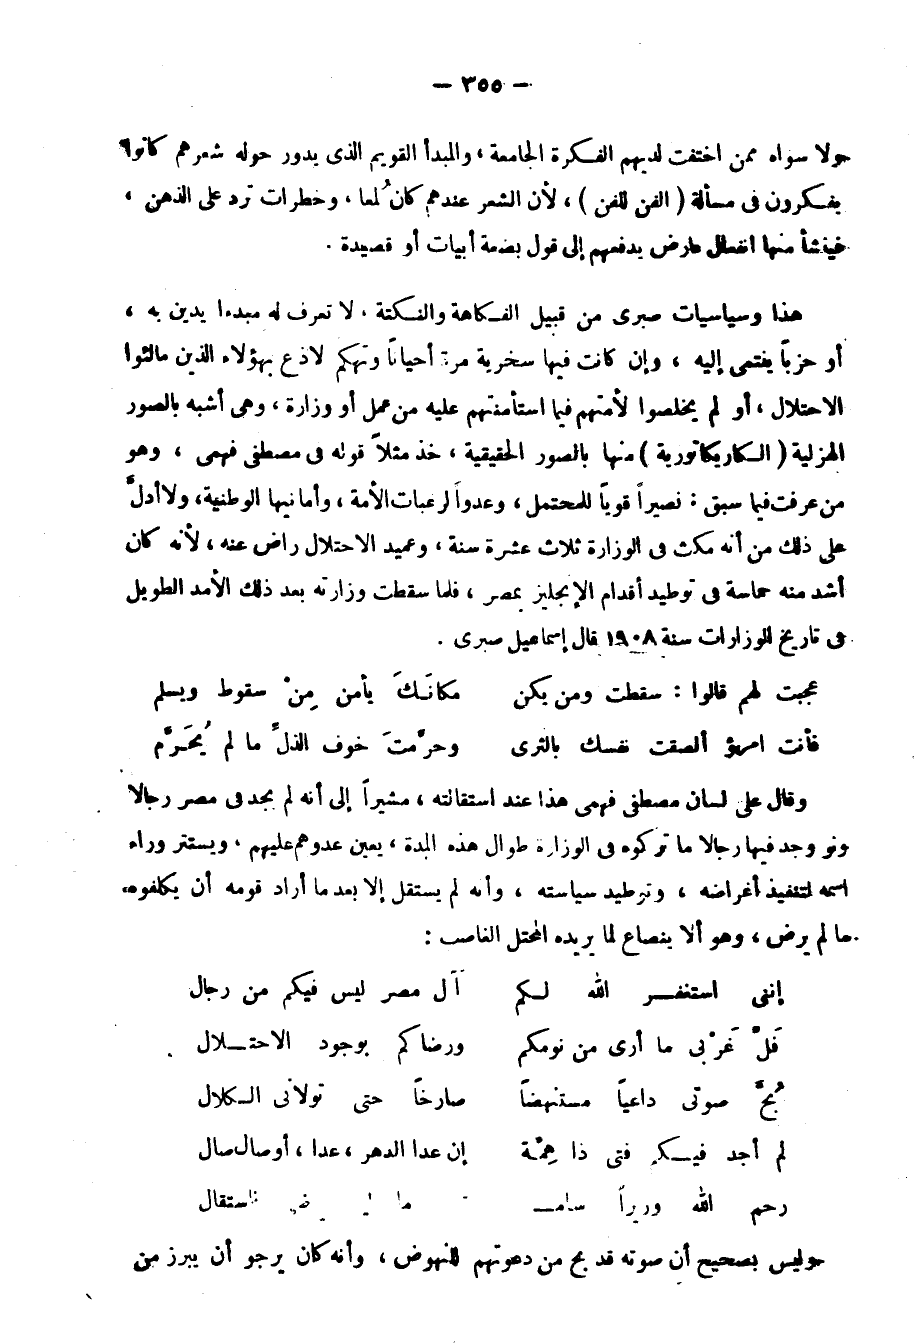 — ٣٥٥ —
ولا سواه ممن اختفت لديهم الفكرة الجامعة ، والمبدأ القويم الذى يدور حوله شعرهم كانوا
يفكرون فى مسألة ( الفن للفن ) ، لأن الشعر عندهم كان لُمعا ، وخطرات ترد على الذهن ،
فينشأ منها انفعال عارض يدفعهم إلى قول بضعة أبيات أو قصيدة .
هذا وسياسيات صبرى من قبيل الفكاهة والنكتة ، لا تعرف له مبدءا يدين به ،
أو حزباً ينتمى إليه ، وإن كانت فيها سخرية مرة أحياناً وتهكم لاذع بهؤلاء الذين مالئوا
الاحتلال ، أو لم يخلصوا لأمتهم فيما استأمنتهم عليه من عمل أو وزارة ، وهى أشبه بالصور
الهزلية ( الكاريكاتورية ) منها بالصور الحقيقية ، خذ مثلاً قوله فى مصطفى فهمى ، وهو
من عرفت فيما سبق : نصيراً قوياً للمحتمل ، وعدواً لرغبات الأمة ، وأمانيها الوطنية، ولا أدلَّ
على ذلك من أنه مكث فى الوزارة ثلاث عشرة سنة ، وعميد الاحتلال راض عنه ، لأنه كان
أشد منه حماسة فى توطيد أقدام الإنجليز بمصر ، فلما سقطت وزارته بعد ذلك الأمد الطويل
فى تاريخ الوزارات سنة ١٩٠٨ قال إسماعيل صبرى .
عجبت لهم قالوا : سقطت ومن يكن مكانَكَ يأمن مِنْ سقوط ويسلم
فأنت امرؤ ألصقت نفسك بالثرى وحرَّمتَ خوف الذلِّ ما لم يُحَرَّم
وقال على لسان مصطفى فهمى هذا عند استقالته ، مشيراً إلى أنه لم يجد فى مصر رجالا
ولو وجد فيها رجالا ما تركوه فى الوزارة طوال هذه المدة ، يعين عدوهم عليهم ، ويستتر وراء
اسمه لتنفيذ أغراضه ، وتوطيد سياسته ، وأنه لم يستقل إلا بعد ما أراد قومه أن يكلفوه
ما لم يرض ، وهو ألا ينصاع لما يريده المحتل الغاصب :
إننى استغفر الله لكم آل مصر ليس فيكم من رجال
فَلَّ غَرْبى ما أرى من نومكم ورضاكم بوجود الاحتلال
بُحَّ صوتى داعياً مستنهضاً صارخاً حتى تولانى الكلال
لم أجد فيكم فتى ذا هِمَّة إن عدا الدهر ، عدا ، أو صال صال
رحم الله وزيراً فاستقال
وليس بصحيح أن صوته قد بح من دعوتهم للنهوض ، وأنه كان يرجو أن يبرز من